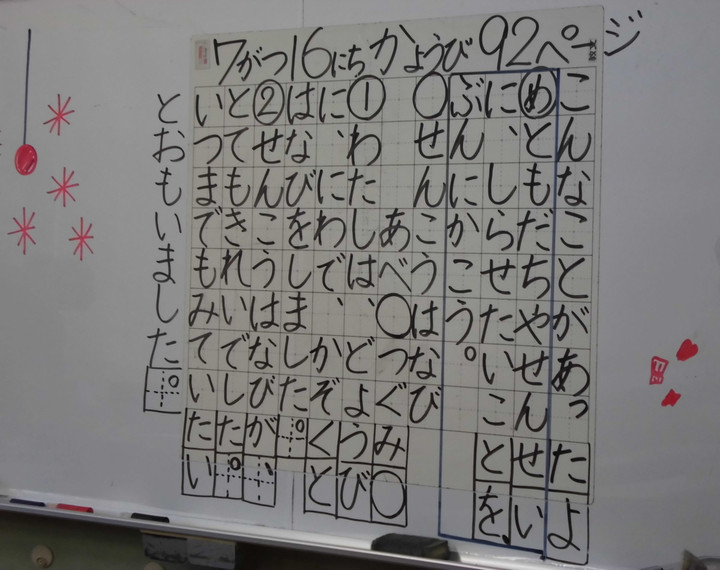 7がつ16にちかようび 92ページ
こんなことがあったよ
めともだちやせんせい
に、しらせたいことを
ぶんにかこう。
○せんこうはなび
あべ○つぐみ○
①わたしは、どようび
に、にわで、かぞくと
はなびをしました。
②せんこうはなびが、
とてもきれいでした。
いつまでもみていたい
とおもいました。